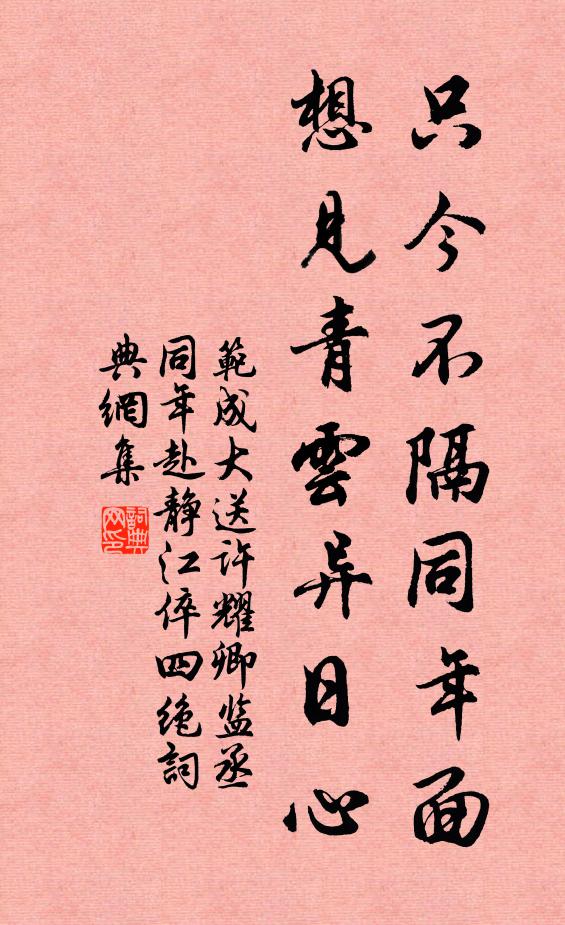 只今不隔同年面
想见青雲异日心
範成大送许耀卿监丞
同年赴静江倅四绝詞
典網集
詞典网印